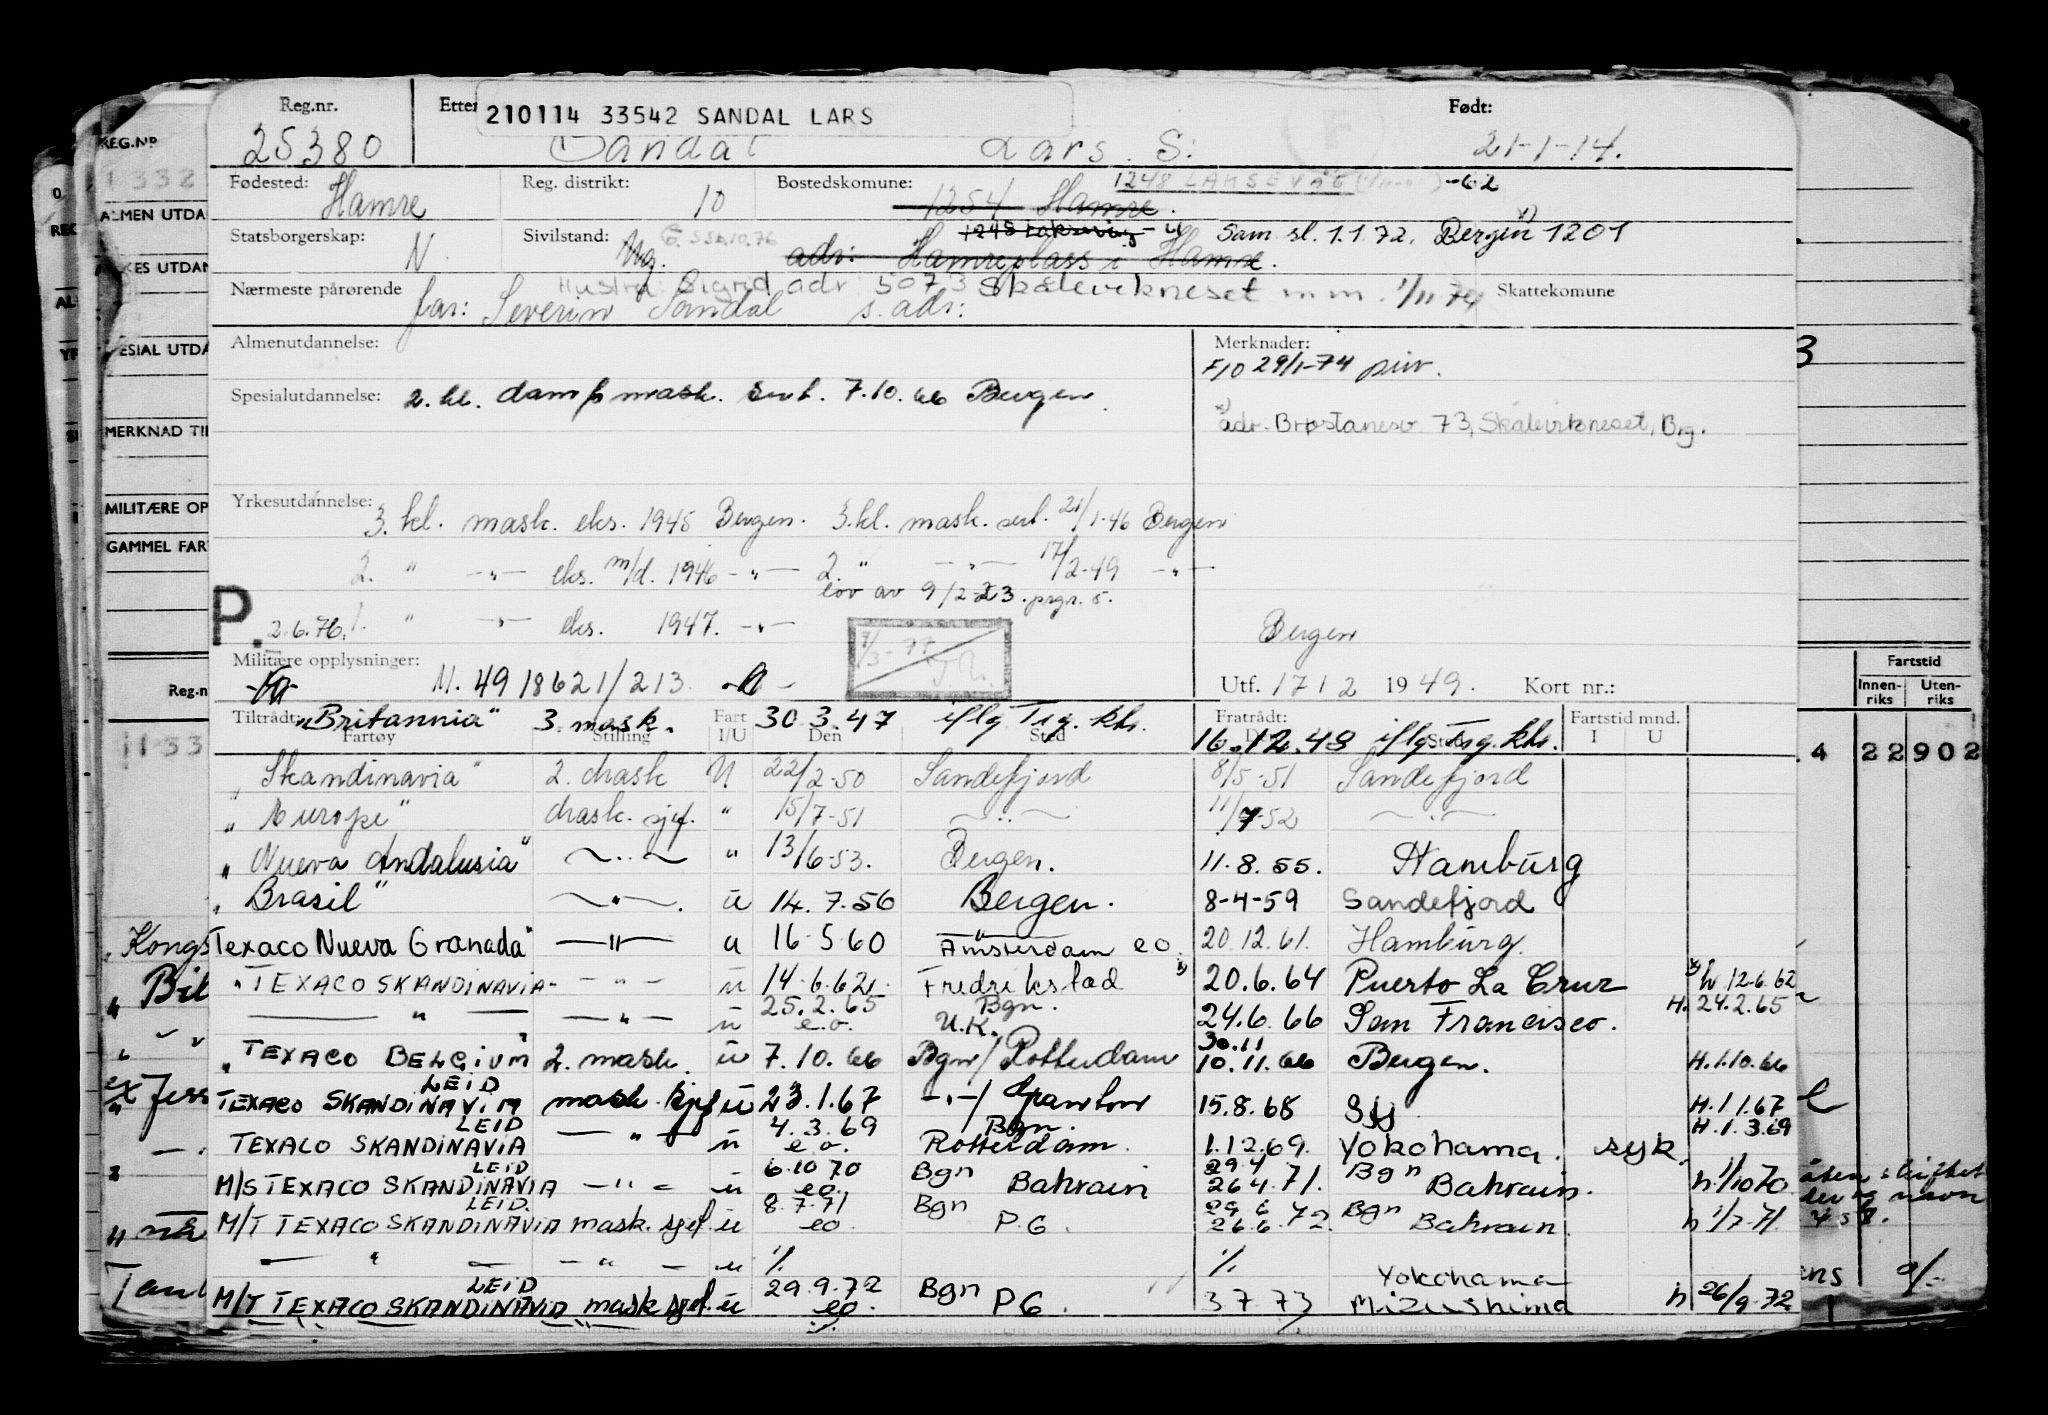 Reg.nr. Etter 210114 33542 SANDAL LARS Født:
25380 Sandal Lars S. 21-1-14.
Fødested: Hamre Reg. distrikt: 10 Bostedskomune: 1254 Hamre. 1248 LAKSEVÅG -62
Statsborgerskap: N Sivilstand: Ug. adr: Hamreplass i Hamre. Sam. sl. 1.1.72. Bergen 1201
Hustru: Sigrid adr. 5073 Skålevikneset m.m. 1/11 74
Nærmeste pårørende far: Severin Sandal s. adr: Skattekomune
Almenutdannelse: Merknader:
F10 29/1-74 piw.
Spesialutdannelse: 2. kl. damp mask. sert. 7.10.66 Bergen
adr. Brostanesv. 73, Skålevikneset, Brg.
Yrkesutdannelse: 3. kl. mask. eks. 1945 Bergen. 3. kl. mask. sert. 21/1-46 Bergen
2. " -"- eks. m/d. 1946 -"- 2. " -"- 17/2-49 -"-
lov av 9/2-23. prgr. 5.
P. 2.6.76. 1. " -"- eks. 1947. -"- Bergen
Militære opplysninger: M. 49 18621/213. Utf. 17 1 2 1949. Kort nr.:
Tiltrådt: "Britannia" 3. mask. Fart 30 3. 47 iflg. Tsg. kbr. Fratrådt: 16.12.48 iflg. Tsg. kbr. Fartstid mnd.
Fartøy Stilling I/U Den Sted Sted I U
"Skandinavia" 2. mask U. 22/2-50 Sandefjord 8/5-51 Sandefjord
"Europe" mask. sjef. " 15/7-51 -"- 11/7-52 -"-
"Nueva Andalusia" -"- " 13/6-53. Bergen. 11.8.55. Hamburg
"Brasil" -"- u 14.7.56 Bergen. 8-4-59 Sandefjord
"Texaco Nueva Granada" -"- u 16.5.60 Amsterdam eo. 20.12.61. Hamburg
"TEXACO SKANDINAVIA- -"- u 14.6.62 Fredrikstad 20.6.64 Puerto La Cruz h 12.6.62
-"- -"- u 25.2.65 e.o. Bgn. U.K. 24.6.66 San Francisco. H. 24.2.65
"TEXACO BELGIUM" 2. mask. u 7.10.66 Bgn/Rotterdam 30.11 10.11.66 Bergen. H.1.10.66
LEID
TEXACO SKANDINAVIA mask. sjef u 23.1.67 -"-/ 15.8.68 Sfj H.1.1.67
LEID
TEXACO SKANDINAVIA -"- u 4.3.69 e.o. Bgn. Rotterdam. 1.12.69. Yokohama. syk. H.1.3.69
LEID
M/S TEXACO SKANDINAVIA -"- u 6.10 70 eo. Bgn Bahrain 29.4 26.4.71. Bgn Bahrain. h. 1/10 70
LEID.
M/T TEXACO SKANDINAVIA mask. sjef. u 8.7.71 eo Bgn P.G. 29 6 26.6.72. Bgn Bahrain. h 1/7-71
-"- -"- u % %
LEID
M/T TEXACO SKANDINAVIA mask sjef. u 29.9.72 eo. Bgn PG. 3 7 73 Yokohama Mizushima h 26/9-72
REG.NR
1332
ALMEN UTDA
MERKNAD TIL
MILITÆRE OP
GAMMEL FAR
Reg.n
Fartstid
Innen-riks Uten-riks
4 22902